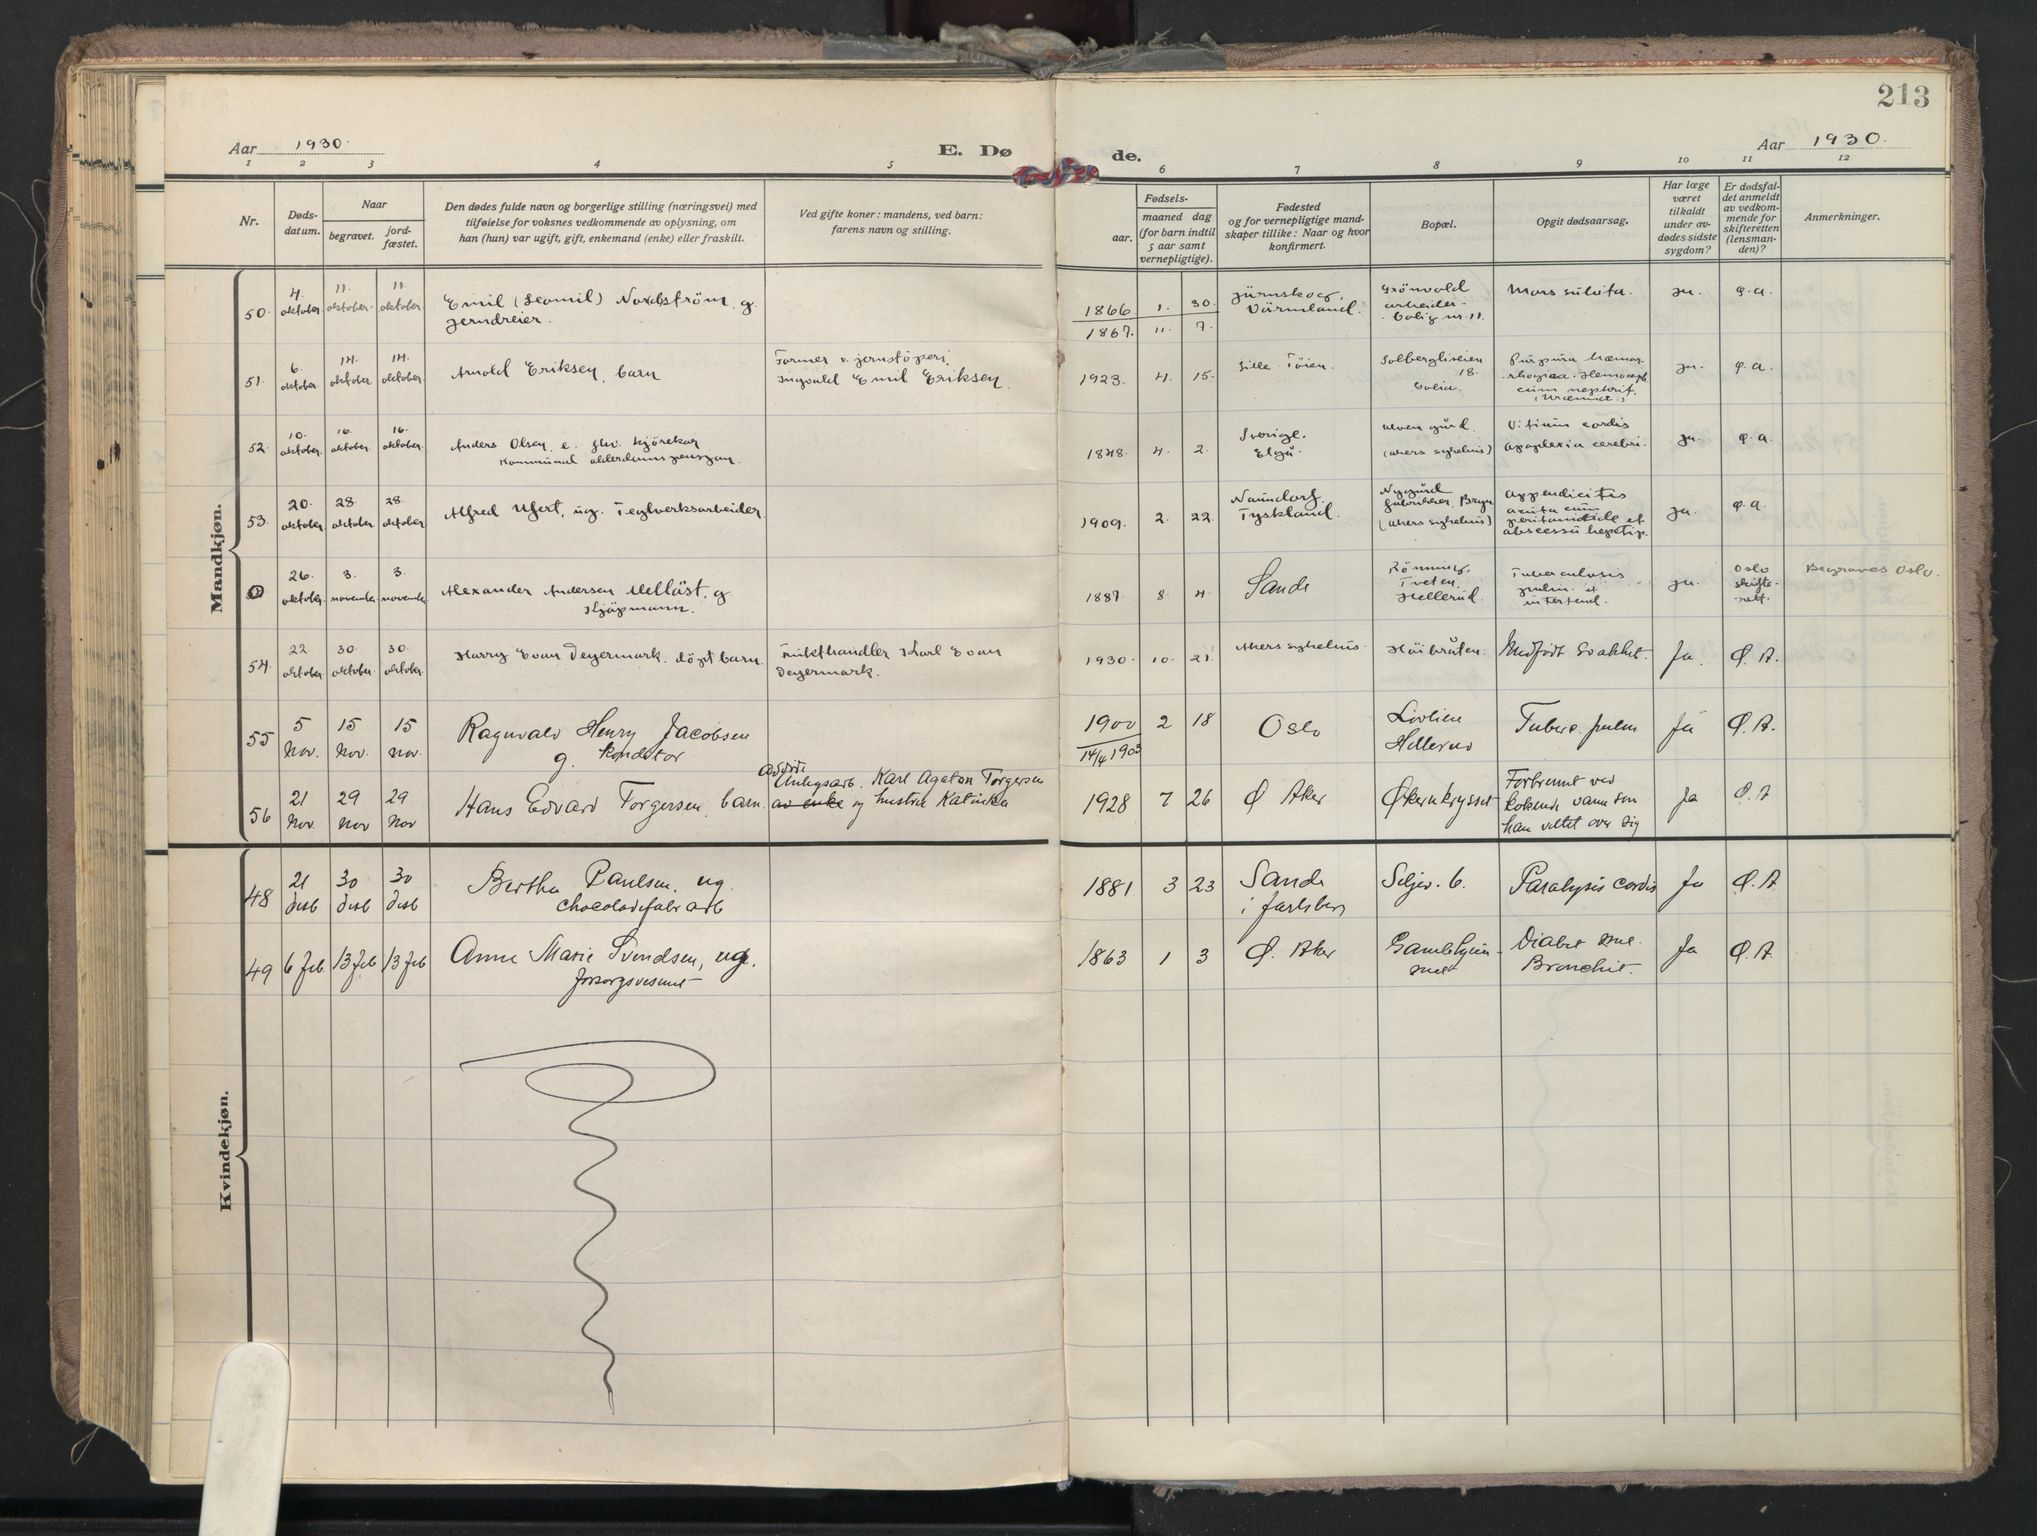 213
Aar 1930.
E. Dø
de.
Aar 1930.
1 2 3 4 5 6 7 8 9 10 11 12
Nr.
Døds-
datum.
Naar
begravet.
jord-
fæstet.
Den dødes fulde navn og borgerlige stilling (næringsvei) med
tilføielse for voksnes vedkommende av oplysning, om
han (hun) var ugift, gift, enkemand (enke) eller fraskilt.
Ved gifte koner: mandens, ved barn:
farens navn og stilling.
Fødsels-
aar.
maaned dag
(for barn indtil
5 aar samt
vernepligtige).
Fødested
og for vernepligtige mand-
skaper tillike: Naar og hvor
konfirmert.
Bopæl.
Opgit dødsaarsag.
Har læge
været
tilkaldt
under av-
dødes sidste
sygdom?
Er dødsfal-
det anmeldt
av vedkom-
mende for
skifteretten
(lensman-
den)?
Anmerkninger.
Mandkjøn.
50. 4. oktober 11. oktober. 11. oktober
Emil (Leomil) Nordström g.
jerndreier.
1866 1. 30.
1867. 11. 7.
Värmland.
Grönvold
arbeider-
bolig nr. 11.
Mors subita.
ja.
ø.a.
51. 6. oktober 14. oktober 14. oktober
Arnold Eriksen, barn
Former v. jernstöperi
Ingvald Emil Eriksen.
1923. 4. 15.
Lille Töien.
Solbergliveien
18.
Purpura hæmor-
cum nephrit.
ja.
ø.a.
52. 10. oktober 16. oktober. 16. oktober.
Anders Olsen, e. fhv. kjörekar
Kommunal alderdoms
1848. 4. 2.
Sverige.
Ulven gård.
(Akers sykehus)
Vitium cordis
apoplexia cerebri.
ja.
ø.a.
53. 20. oktober 28. oktober 28. oktober
Alfred Ufert, ug. Teglverksarbeider
1909. 2. 22.
Naundorf.
Tyskland.
Nygård
Bryn
(Akers sykehus)
Appendicitis
acuta cum
ja.
ø.a.
0 26. oktober. 3. november 3. november
Alexander Andersen Melläst, g.
Kjöpmann.
1887. 8. 4.
Sande
Rönning,
Tveten,
Hellerud.
Tuberculosis
pulm. et
intestend.
ja.
Oslo
skifte-
rett.
Begraves Oslo.
54. 22. oktober 30. oktober. 30. oktober.
Harry Evan Degermark. döpt barn.
Frukthandler Karl Evan
Degermark.
1930. 10. 21.
Akers sykehus.
Höibråten.
Medfödt svakhet.
Ja.
Ø. A.
55 5 Nov. 15 Nov. 15 nov.
Ragnvald Henry Jacobsen
g. konditor
1900 2 18
14/4 1903
Oslo
Livlien
Hellerud
Tuberc. pulm
Ja
Ø. A.
56 21 Nov. 29 Nov 29 Nov
Hans Edvard Torgersen, barn.
Anlegsarb. Karl Agaton Torgersen
av enke og hustru Katinka
1928 7 26
Ø Aker
Økernkrysset
Forbrent ved
kokende vann som
han veltet over sig
Ja
Ø. A
Kvindekjøn.
48 21 desb 30 desb 30 desb
Bertha Paulsen, ug.
chocoladefabr arb
1881 3 23
Sande
i Jarlsberg
Seljev. 6.
Paralysis cordis
Ja
Ø. A
49 6 feb. 13 feb 13 feb
Anne Marie Svendsen, ug.
forsorgsvesnet
1863 1 3
Ø. Aker
Gamlehjem-
met
Diabet mel.
Bronchit.
Ja
Ø. A